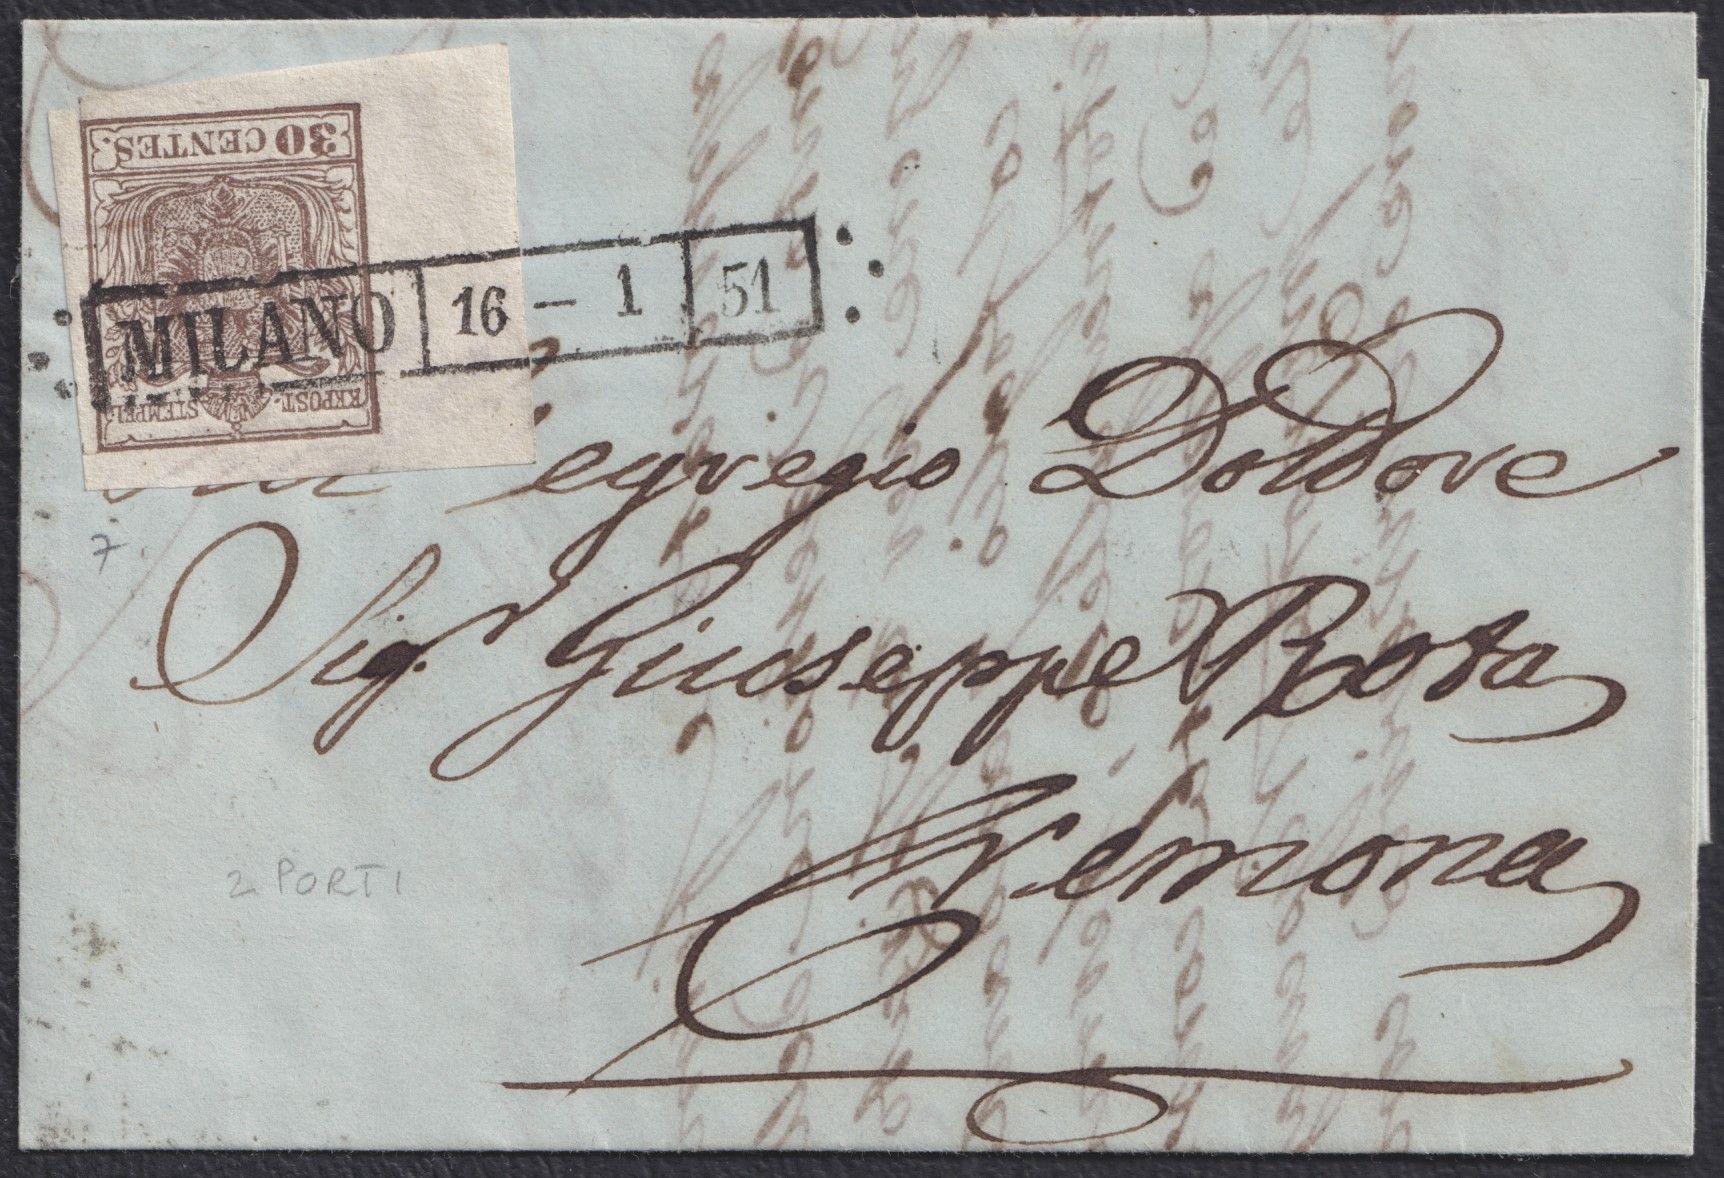 30 CENTES.
KKPOST-
STEMPEL
MILANO 16 - 1 51
All' egregio Dottore
7.
Sig.r Giuseppe Rota
2 PORTI
Cremona